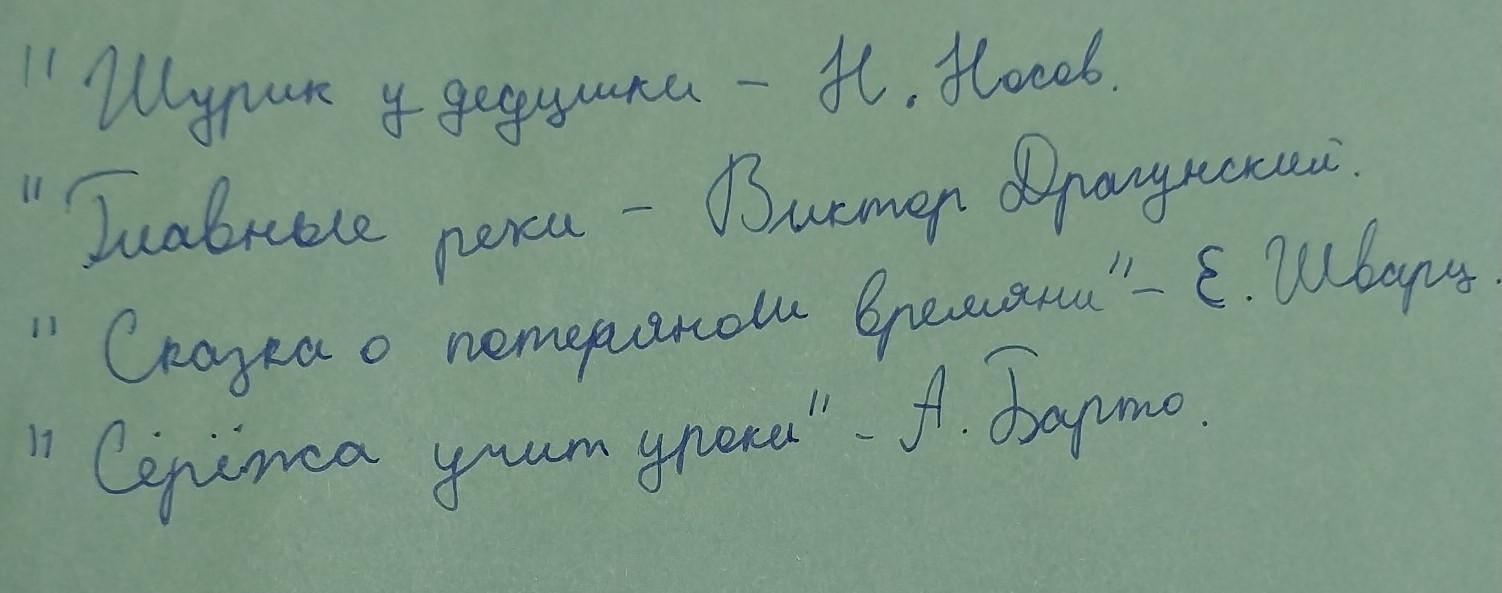 "Шурик у дедушки - Н. Носов.
"Главные реки - Виктор Драгунский.
"Сказка о потеряном времяни" - Е. Шварц.
"Серёжа учит уроки" - А. Барто.